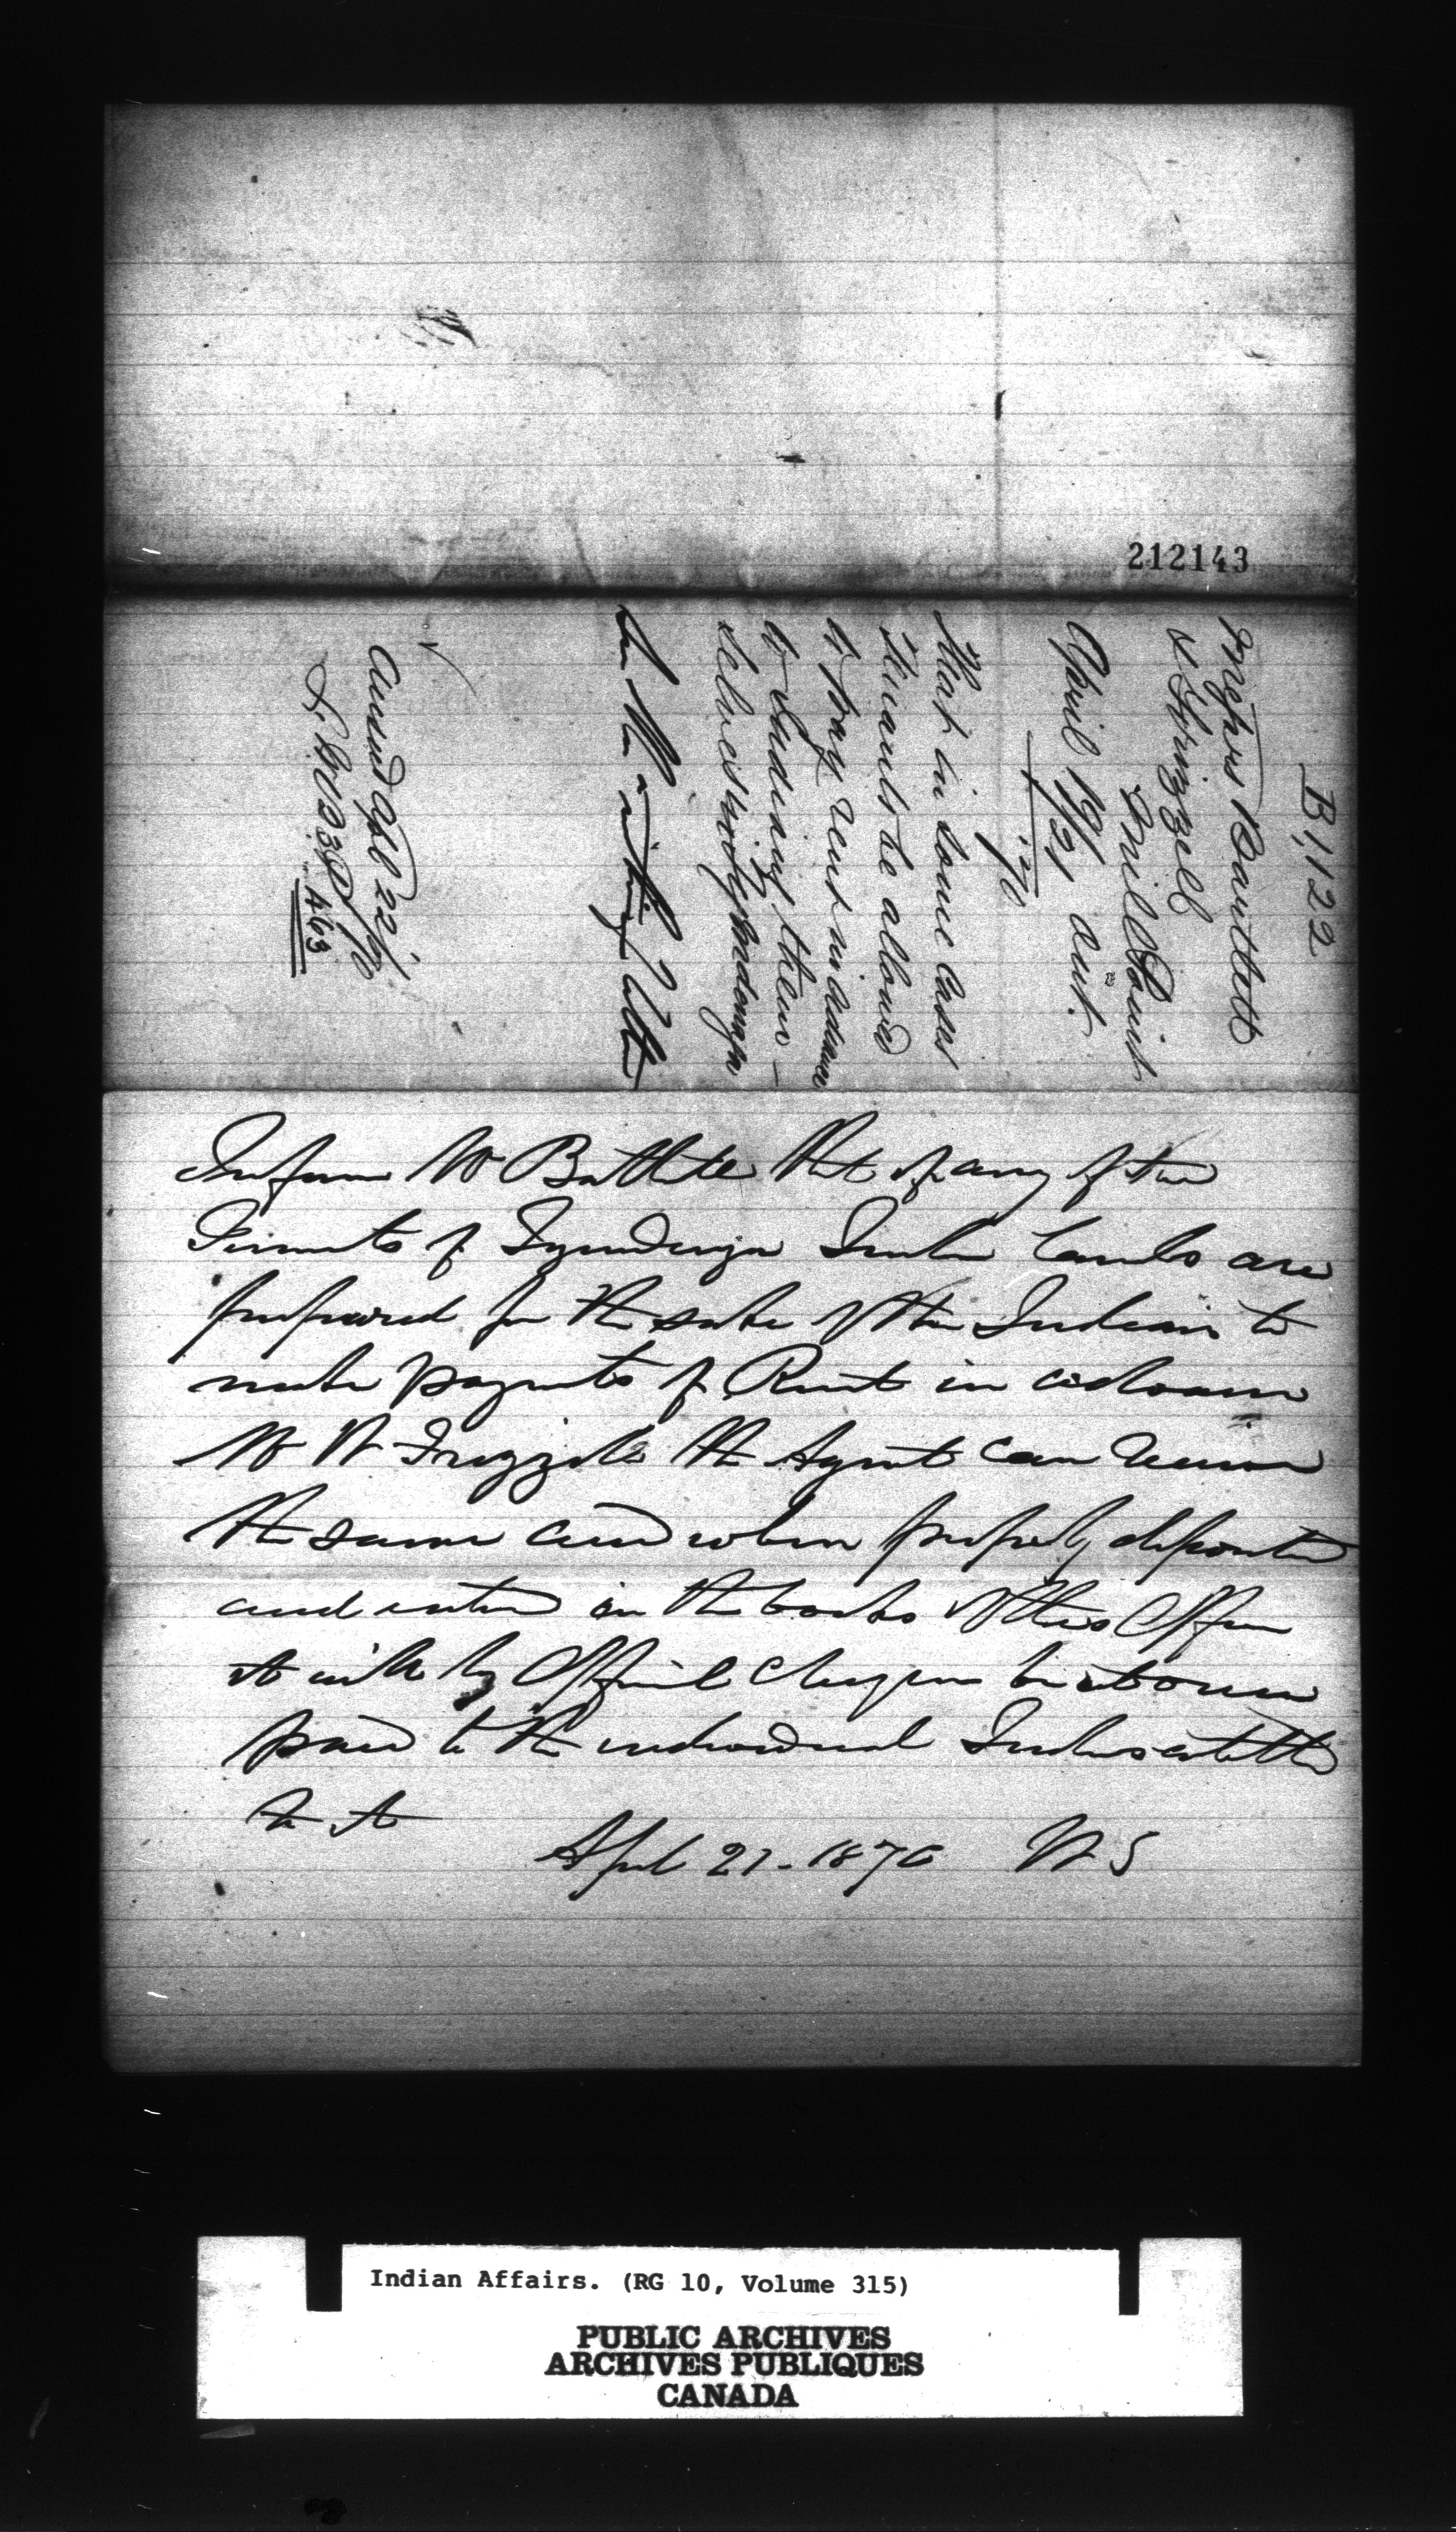 212143
B, 122
Messrs Bartlett
& Frizzell
Mill Point
April 19/21 ant.
1870
That in some cases
tenants be allowed
to pay rent in advance
to Indians, them-
selves
Ansd Apl 22/70
L. B. 463
Inform Mr Bartlett that if any of the
Tenants of Tyendinaga Indian Lands are
prepared for the sake of the Indians to
make payments of Rent in advance
Mr W Frizzell the Agent can receive
the same and when properly deposited
and entered in the books of this Office
it will by Official Cheques be
paid to the individual Indians entitled
to it
April 21 - 1870 W S
Indian Affairs. (RG 10, Volume 315)
PUBLIC ARCHIVES
ARCHIVES PUBLIQUES
CANADA